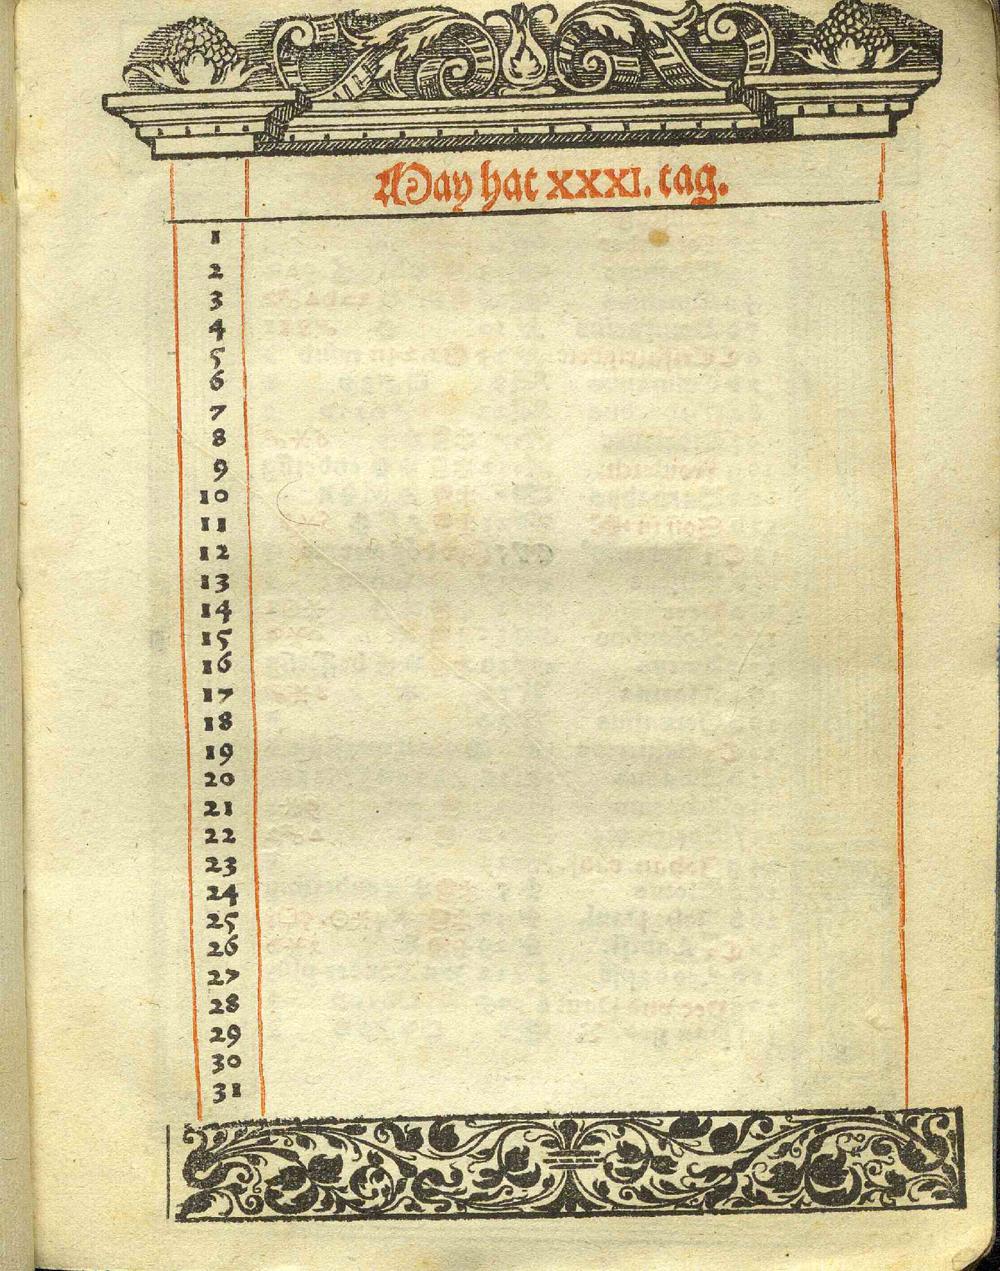 May hat XXXI. tag.
1
2
3
4
5
6
7
8
9
10
11
12
13
14
15
16
17
18
19
20
21
22
23
24
25
26
27
28
29
30
31